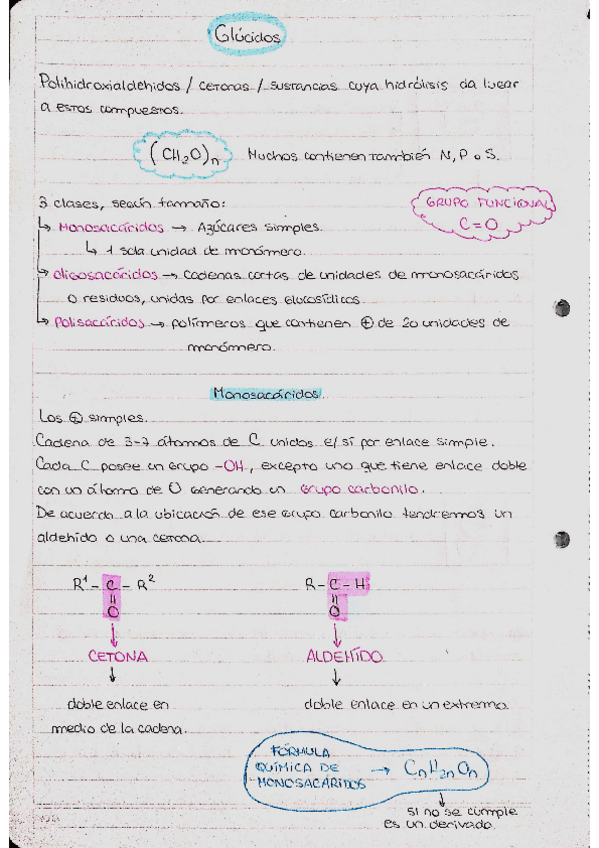 Glúcidos
Polihidroxialdehidos / cetonas / sustancias cuya hidrólisis da lugar
a estos compuestos.
(CH₂O)n Muchos contienen también N, P o S.
3 clases, según tamaño:
GRUPO FUNCIONAL
C=O
↳ Monosacáridos → Azúcares simples.
↳ 1 sola unidad de monómero.
↳ Oligosacáridos → cadenas cortas de unidades de monosacáridos
o residuos, unidas por enlaces glucosídicos
↳ Polisacáridos → polímeros que contienen ⊕ de 20 unidades de
monómero.
Monosacáridos.
Los ⊕ simples.
Cadena de 3-7 átomos de C unidos e/ sí por enlace simple.
Cada C posee un grupo -OH, excepto uno que tiene enlace doble
con un átomo de O generando un grupo carbonilo.
De acuerdo a la ubicación de ese grupo carbonilo tendremos un
aldehido o una cetona.
R¹ - C - R² R - C - H
|| ||
O O
↓ ↓
CETONA ALDEHÍDO
↓ ↓
doble enlace en doble enlace en un extremo.
medio de la cadena.
FÓRMULA
QUÍMICA DE → CnH2nOn
MONOSACÁRIDOS
↓
si no se cumple
es un derivado.